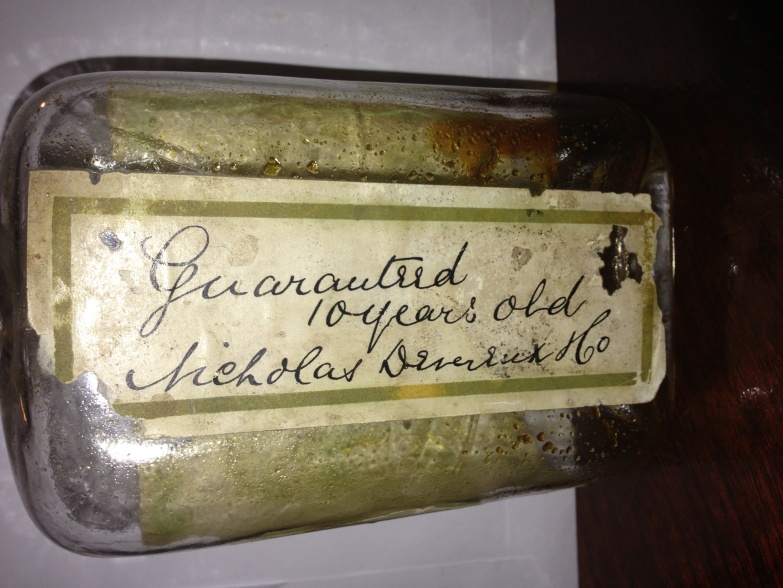 Guaranteed
10 years old
Nicholas Devereux Ho